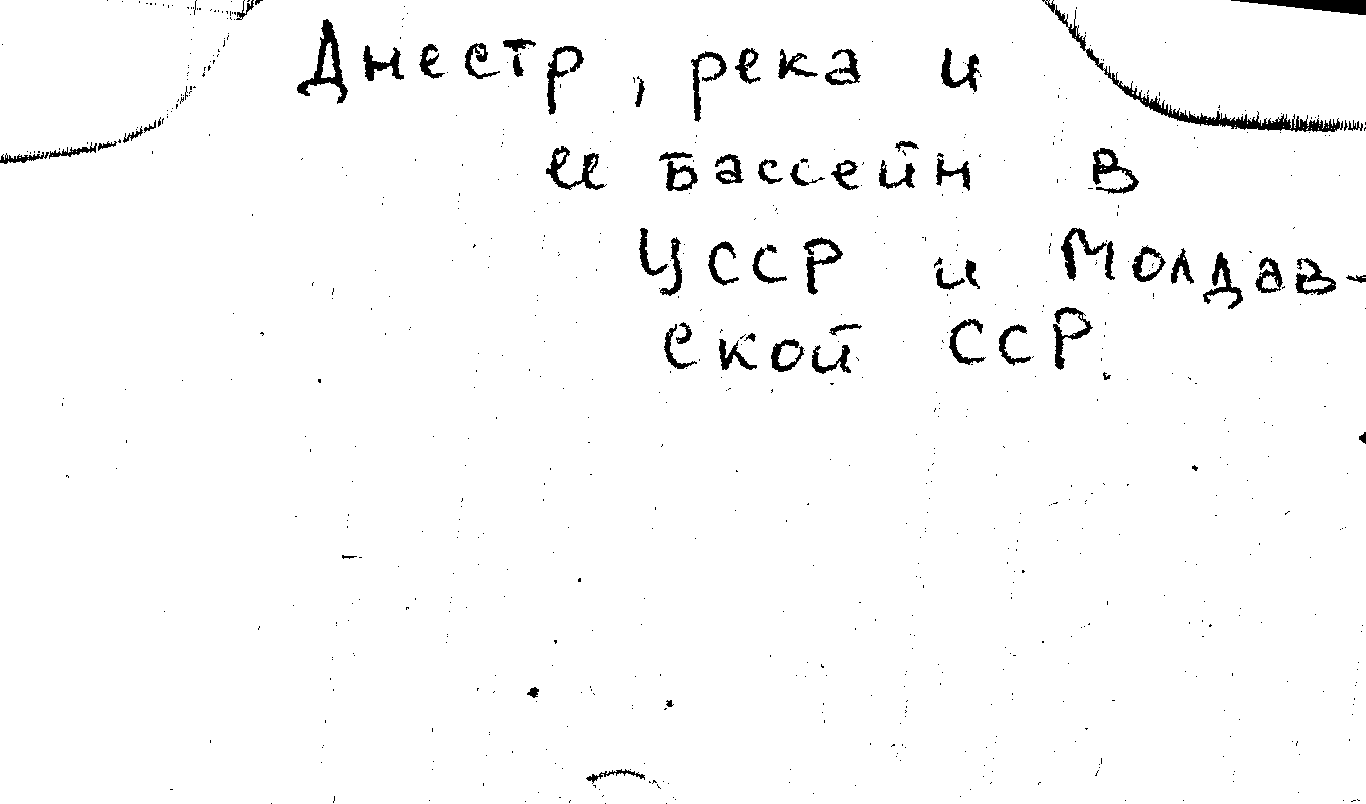 Днестр, река и
ее бассейн в
УССР и Молдав-
ской ССР.